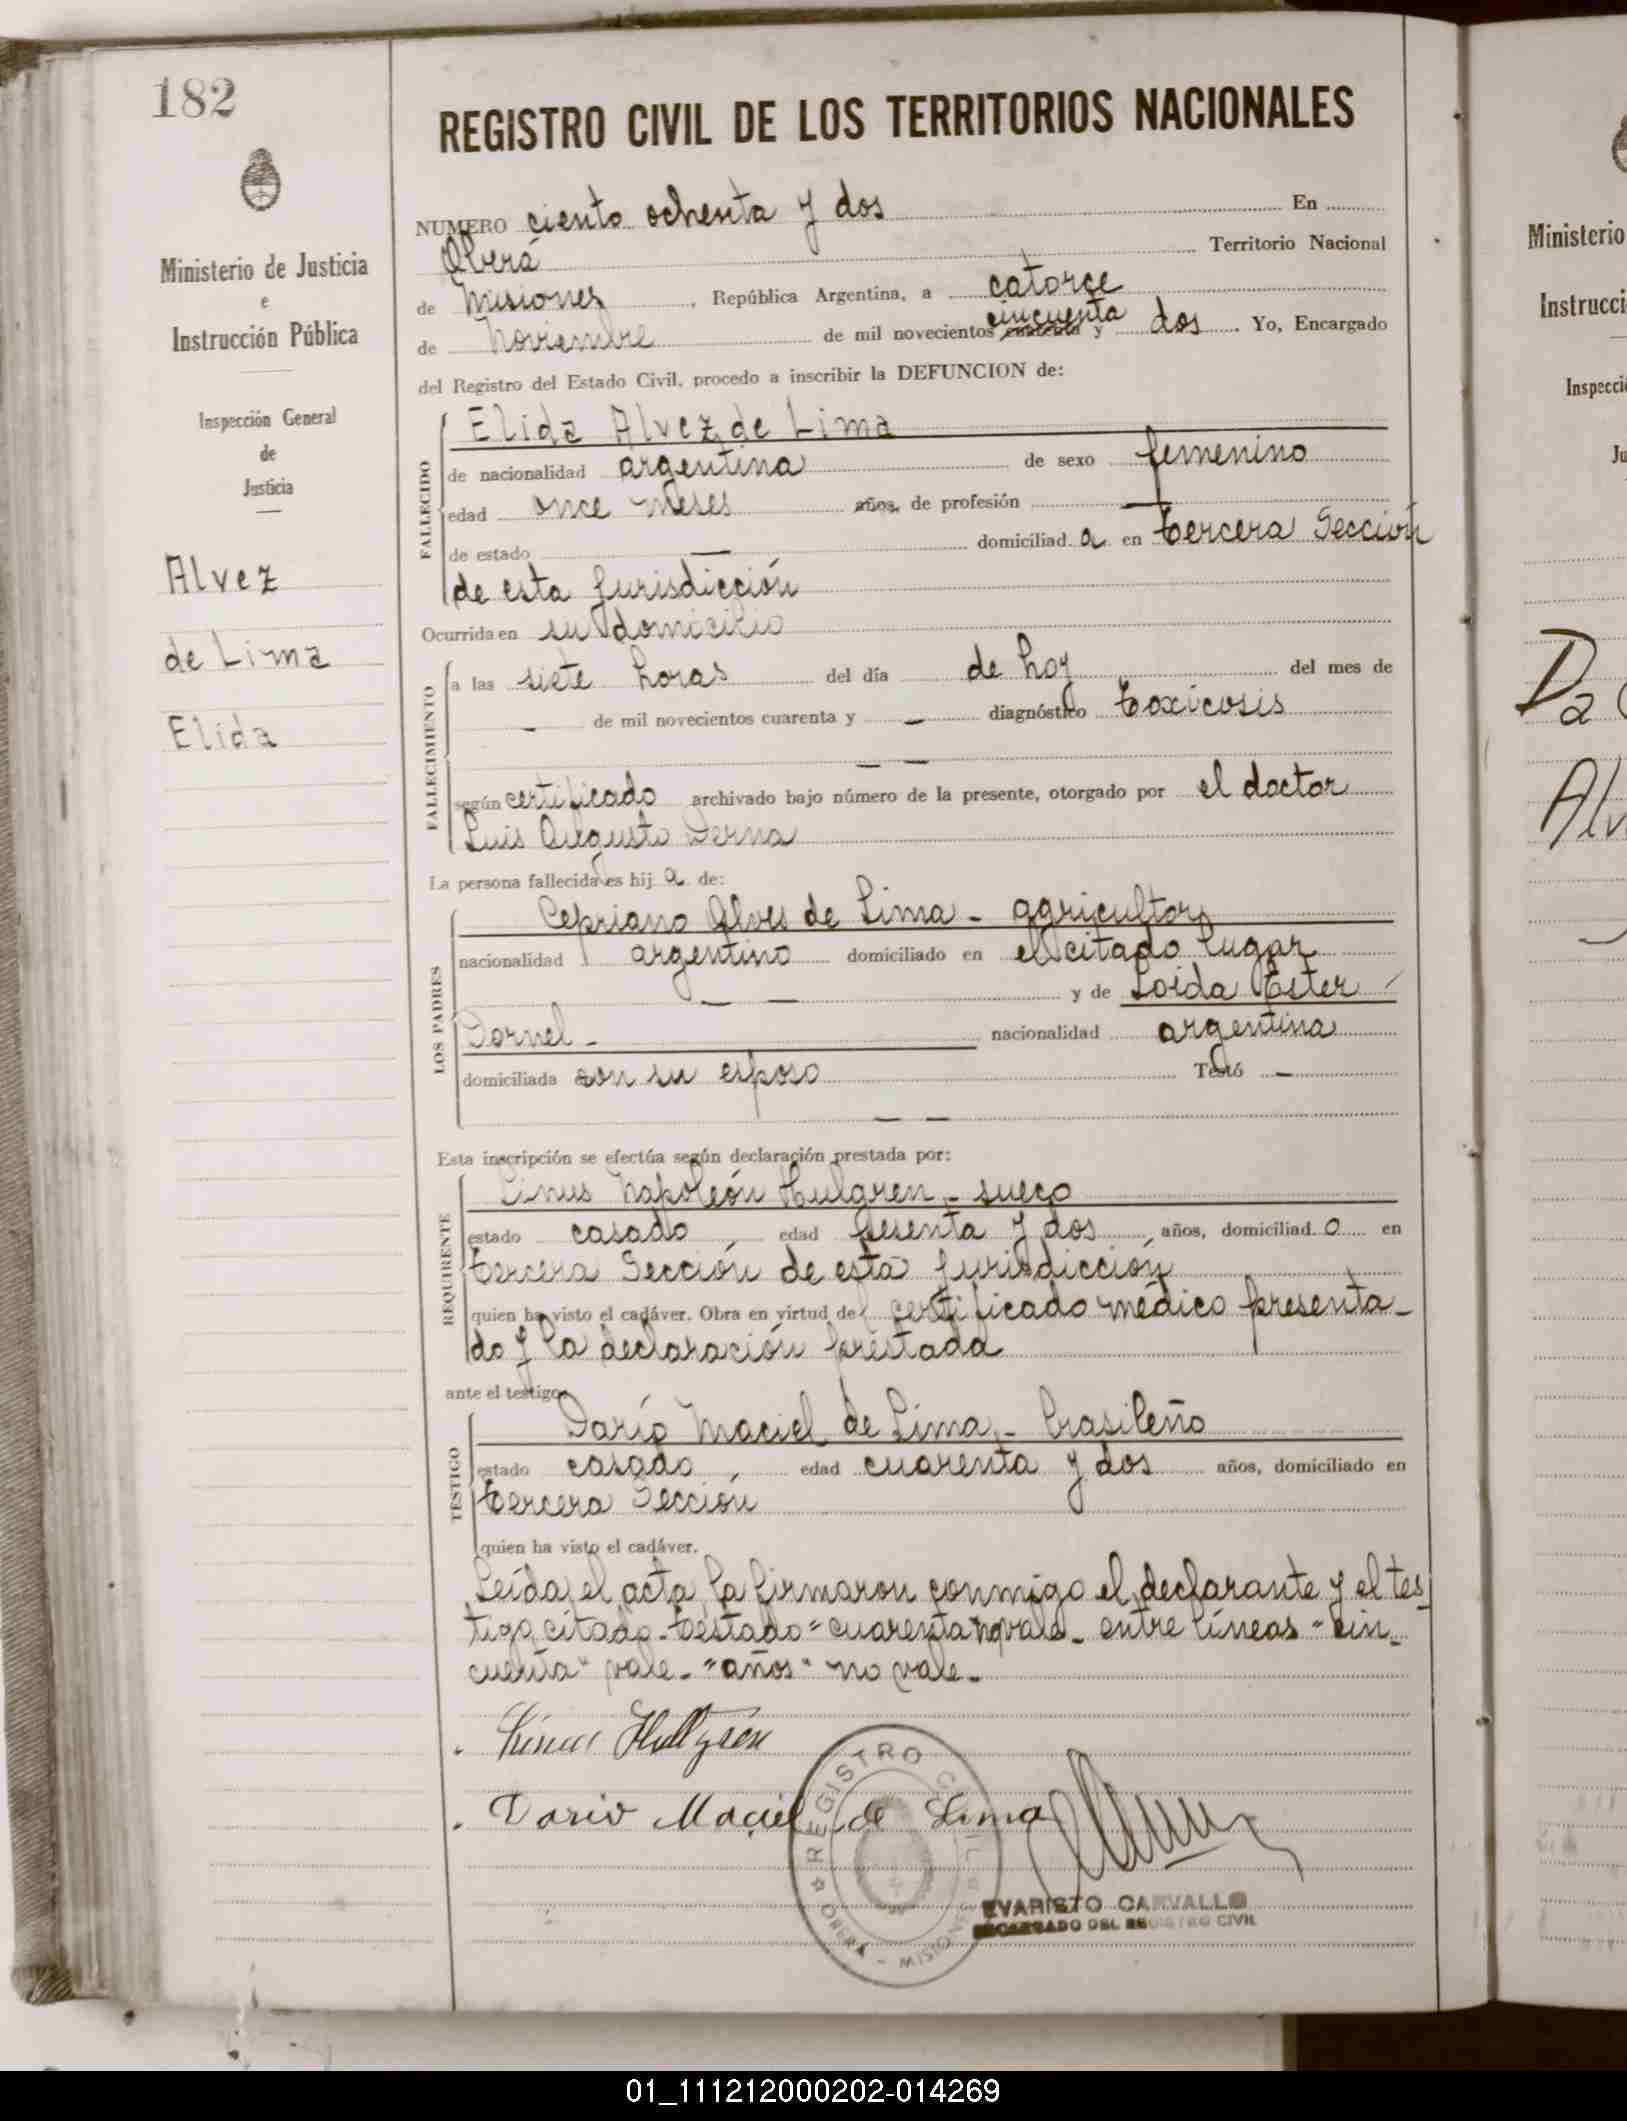 182
REGISTRO CIVIL DE LOS TERRITORIOS NACIONALES
Ministerio de Justicia
e
Instrucción Pública
Inspección General
de
Justicia
Alvez
de Lima
Elida
NUMERO ciento ochenta y dos En
Oberá Territorio Nacional
de Misiones, República Argentina, a catorce
de Noviembre de mil novecientos cuarenta cincuenta y dos. Yo, Encargado
del Registro del Estado Civil, procedo a inscribir la DEFUNCION de:
FALLECIDO
Elida Alvez de Lima
de nacionalidad argentina de sexo femenino
edad once meses años, de profesión —
de estado — domiciliad a en tercera Sección
de esta jurisdicción
Ocurrida en su domicilio
FALLECIMIENTO
a las siete horas del día de hoy del mes de
— de mil novecientos cuarenta y — diagnóstico toxicosis
— —
según certificado archivado bajo número de la presente, otorgado por el doctor
Luis Augusto Derna
La persona fallecida es hij a de:
LOS PADRES
Cepriano Alves de Lima - agricultor
nacionalidad argentino domiciliado en el citado lugar
— — y de Loida Ester
Dornel - nacionalidad argentina
domiciliada con su esposo Testó —
— —
Esta inscripción se efectúa según declaración prestada por:
REQUIRENTE
Linus Napoleón Hulgren - sueco
estado casado, edad sesenta y dos, años, domiciliad o en
tercera Sección de esta jurisdicción
quien ha visto el cadáver. Obra en virtud de certificado médico presenta-
do y la declaración prestada
ante el testigo:
TESTIGO
Darío Maciel de Lima - brasileño
estado casado, edad cuarenta y dos años, domiciliado en
tercera Sección
quien ha visto el cadáver.
Leída el acta la firmaron conmigo el declarante y el tes-
tigo citado - testado "cuarenta" no vale - entre líneas "cin-
cuenta" vale - "años" no vale -
Linus Hultgren
Dario Maciel de Lima
REGISTRO CIVIL
OBERA - MISIONES
EVARISTO CARVALLO
ENCARGADO DEL REGISTRO CIVIL
Ministerio
Instrucci
Inspecci
Ju
Da
Alv
01_111212000202-014269